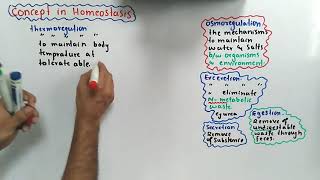 Concept in Homeostasis
thermoregulation
" " " "
to maintain body
tempruture at
tolerate able
osmoregulation
the mechanisms
to maintain
water & salts
b/w organisms
& environment
Excretion
" "
" eliminate
N-metabolic
waste
eg urea
Secretion
Remove
of substance
Egestion
Remove of
undigestable
waste through
feces.